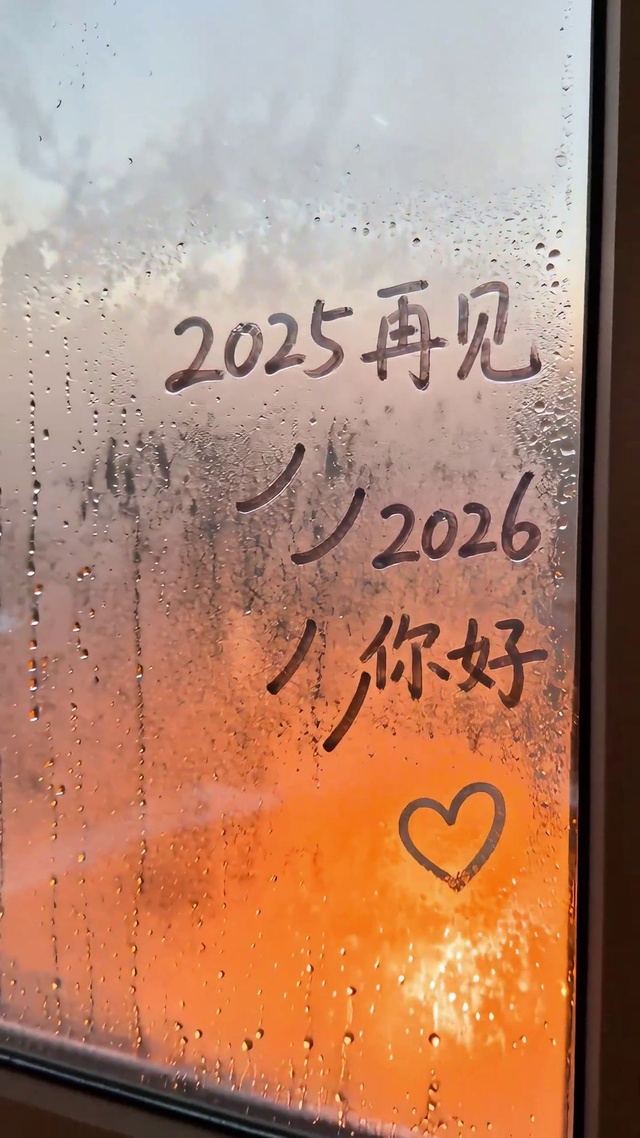 2025再见
2026
你好